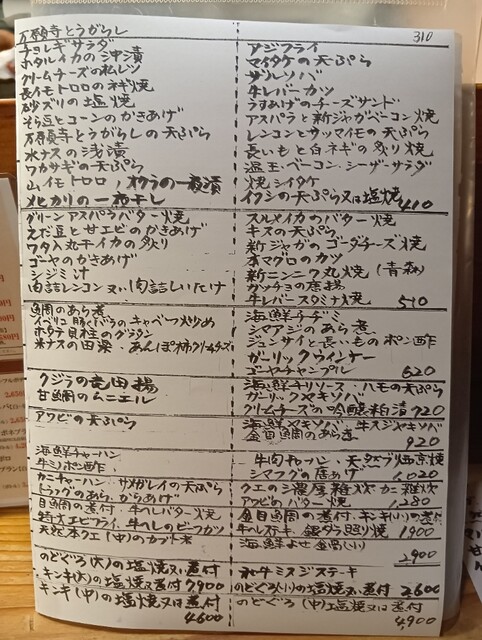 万願寺とうがらし
310
チョレギサラダ
ホタルイカの沖漬
クリームチーズの
長イモトロロのネギ焼
砂ズリの塩焼
そら豆とコーンのかきあげ
万願寺とうがらしの天ぷら
水ナスの浅漬
ワカサギの天ぷら
山イモトロロ / オクラの一夜漬
メヒカリの一夜干し
アジフライ
マイタケの天ぷら
牛レバーカツ
うすあげのチーズサンド
アスパラと新ジャガベーコン焼
レンコンとサツマイモの天ぷら
長いもと白ネギの炙り焼
温玉・ベーコン・シーザーサラダ
焼シイタケ
イワシの天ぷら又は塩焼 410
グリーンアスパラバター焼
えだ豆と甘エビのかきあげ
ワタ入丸干イカの炙り
ゴーヤのかきあげ
シジミ汁
肉詰レンコン又は肉詰しいたけ
スルメイカのバター焼
キスの天ぷら
新ジャガのゴーダチーズ焼
本マグロのカツ
新ニンニク丸焼 (青森)
ガッチョの唐揚
牛レバースタミナ焼 510
魚閒のあら煮
イベリコ豚とぶらのキャベツ炒め
ホタテ貝柱のグラタン
米ナスの田楽 あんぽ柿クリームチーズ
海鮮チヂミ
シマアジのあら煮
ジュンサイと長いものポン酢
ガーリックウインナー
ゴーヤチャンプル 620
クジラの竜田揚
甘鯛のムニエル
海鮮チリソース ハモの天ぷら
ガーリックヤキソバ
クリームチーズの吟醸粕漬 720
アワビの天ぷら
海鮮ヤキソバ 牛スジヤキソバ
金目鯛のあら煮 920
海鮮チャーハン
牛ミノポン酢
牛肉チャーハン
シマフグの唐あげ 1,020
カニチャーハン サメガレイの天ぷら
トラフグのあら、からあげ
クエの濃厚雑炊 カニ雑炊
アワビのバター焼 1,280
目鯛の煮付 牛ヘレバター焼
特大エビフライ 牛ヘレのビーフカツ
天然本クエ(中)のカブト煮
金目鯛の煮付 キンキ(小)の煮付
牛ヘレステキ 銀ダラ照り焼 1900
海鮮よせ
2900
のどぐろ(大)の塩焼又は煮付
キンキ(大)の塩焼又は煮付 7900
キンキ(中)の塩焼又は煮付
4600
和牛ミスジステーキ
のどぐろ(小)の塩焼又は煮付 2600
のどぐろ(中)塩焼又は煮付
4,900